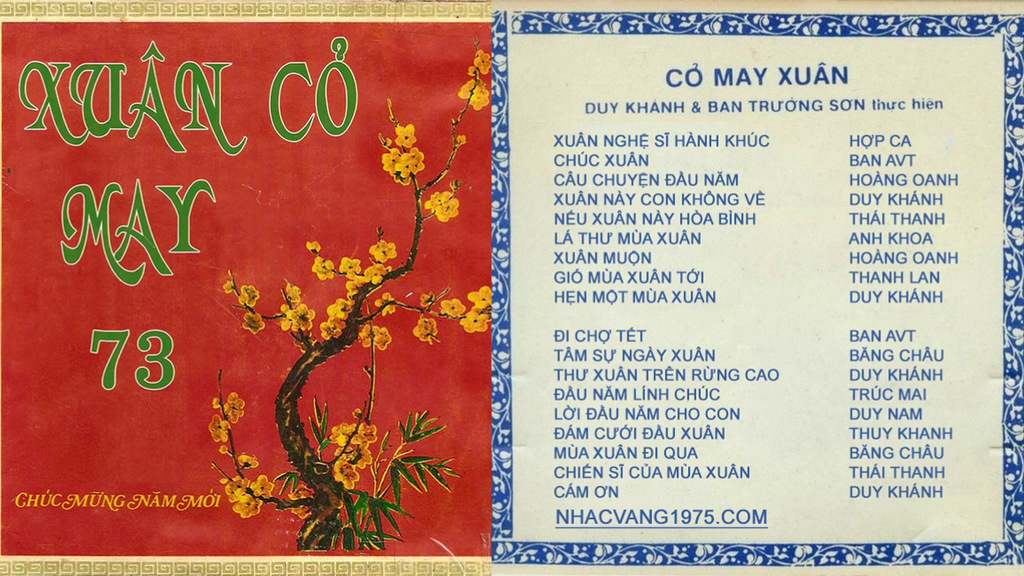 XUÂN CỎ
MAY
73
CHÚC MỪNG NĂM MỚI
CỎ MAY XUÂN
DUY KHÁNH & BAN TRƯỜNG SƠN thực hiện
XUÂN NGHỆ SĨ HÀNH KHÚC HỢP CA
CHÚC XUÂN BAN AVT
CÂU CHUYỆN ĐẦU NĂM HOÀNG OANH
XUÂN NÀY CON KHÔNG VỀ DUY KHÁNH
NẾU XUÂN NÀY HÒA BÌNH THÁI THANH
LÁ THƯ MÙA XUÂN ANH KHOA
XUÂN MUỘN HOÀNG OANH
GIÓ MÙA XUÂN TỚI THANH LAN
HẸN MỘT MÙA XUÂN DUY KHÁNH
ĐI CHỢ TẾT BAN AVT
TÂM SỰ NGÀY XUÂN BĂNG CHÂU
THƯ XUÂN TRÊN RỪNG CAO DUY KHÁNH
ĐẦU NĂM LÍNH CHÚC TRÚC MAI
LỜI ĐẦU NĂM CHO CON DUY NAM
ĐÁM CƯỚI ĐẦU XUÂN THUY KHANH
MÙA XUÂN ĐI QUA BĂNG CHÂU
CHIẾN SĨ CỦA MÙA XUÂN THÁI THANH
CÁM ƠN DUY KHÁNH
NHACVANG1975.COM